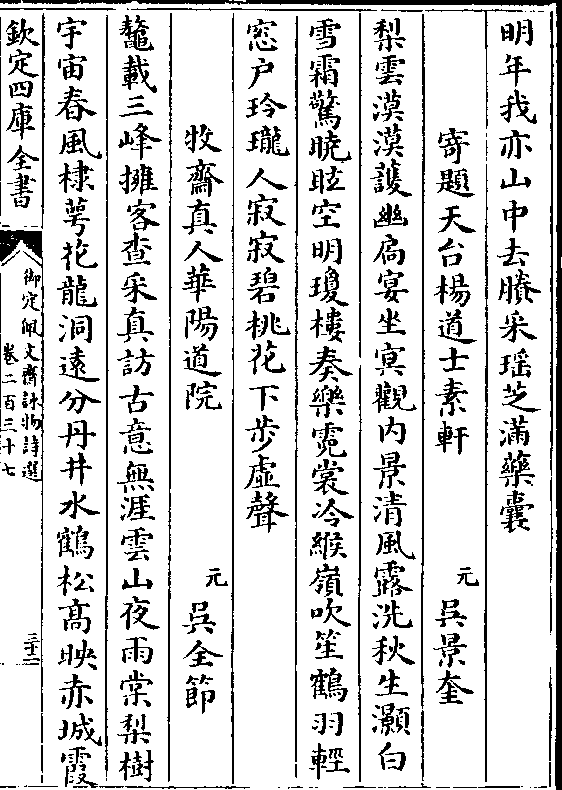 明年我亦山中去賸采瑶芝滿藥囊
寄題天台楊道士素軒 元 吳景奎
梨雲漠漠護幽扃宴坐冥觀内景清風露洗秋生灝白
雪霜驚曉眩空明瓊樓奏樂霓裳冷緱嶺吹笙鶴羽輕
窓户玲瓏人寂寂碧桃花下步虚聲
牧齋真人華陽道院 元 吳全節
鼇載三峰擁客查采真訪古意無涯雲山夜雨棠梨樹
宇宙春風棣萼花龍洞遠分丹井水鶴松髙映赤城霞
欽定四庫全書
御定佩文齋詠物詩選
卷二百三十七
三十二